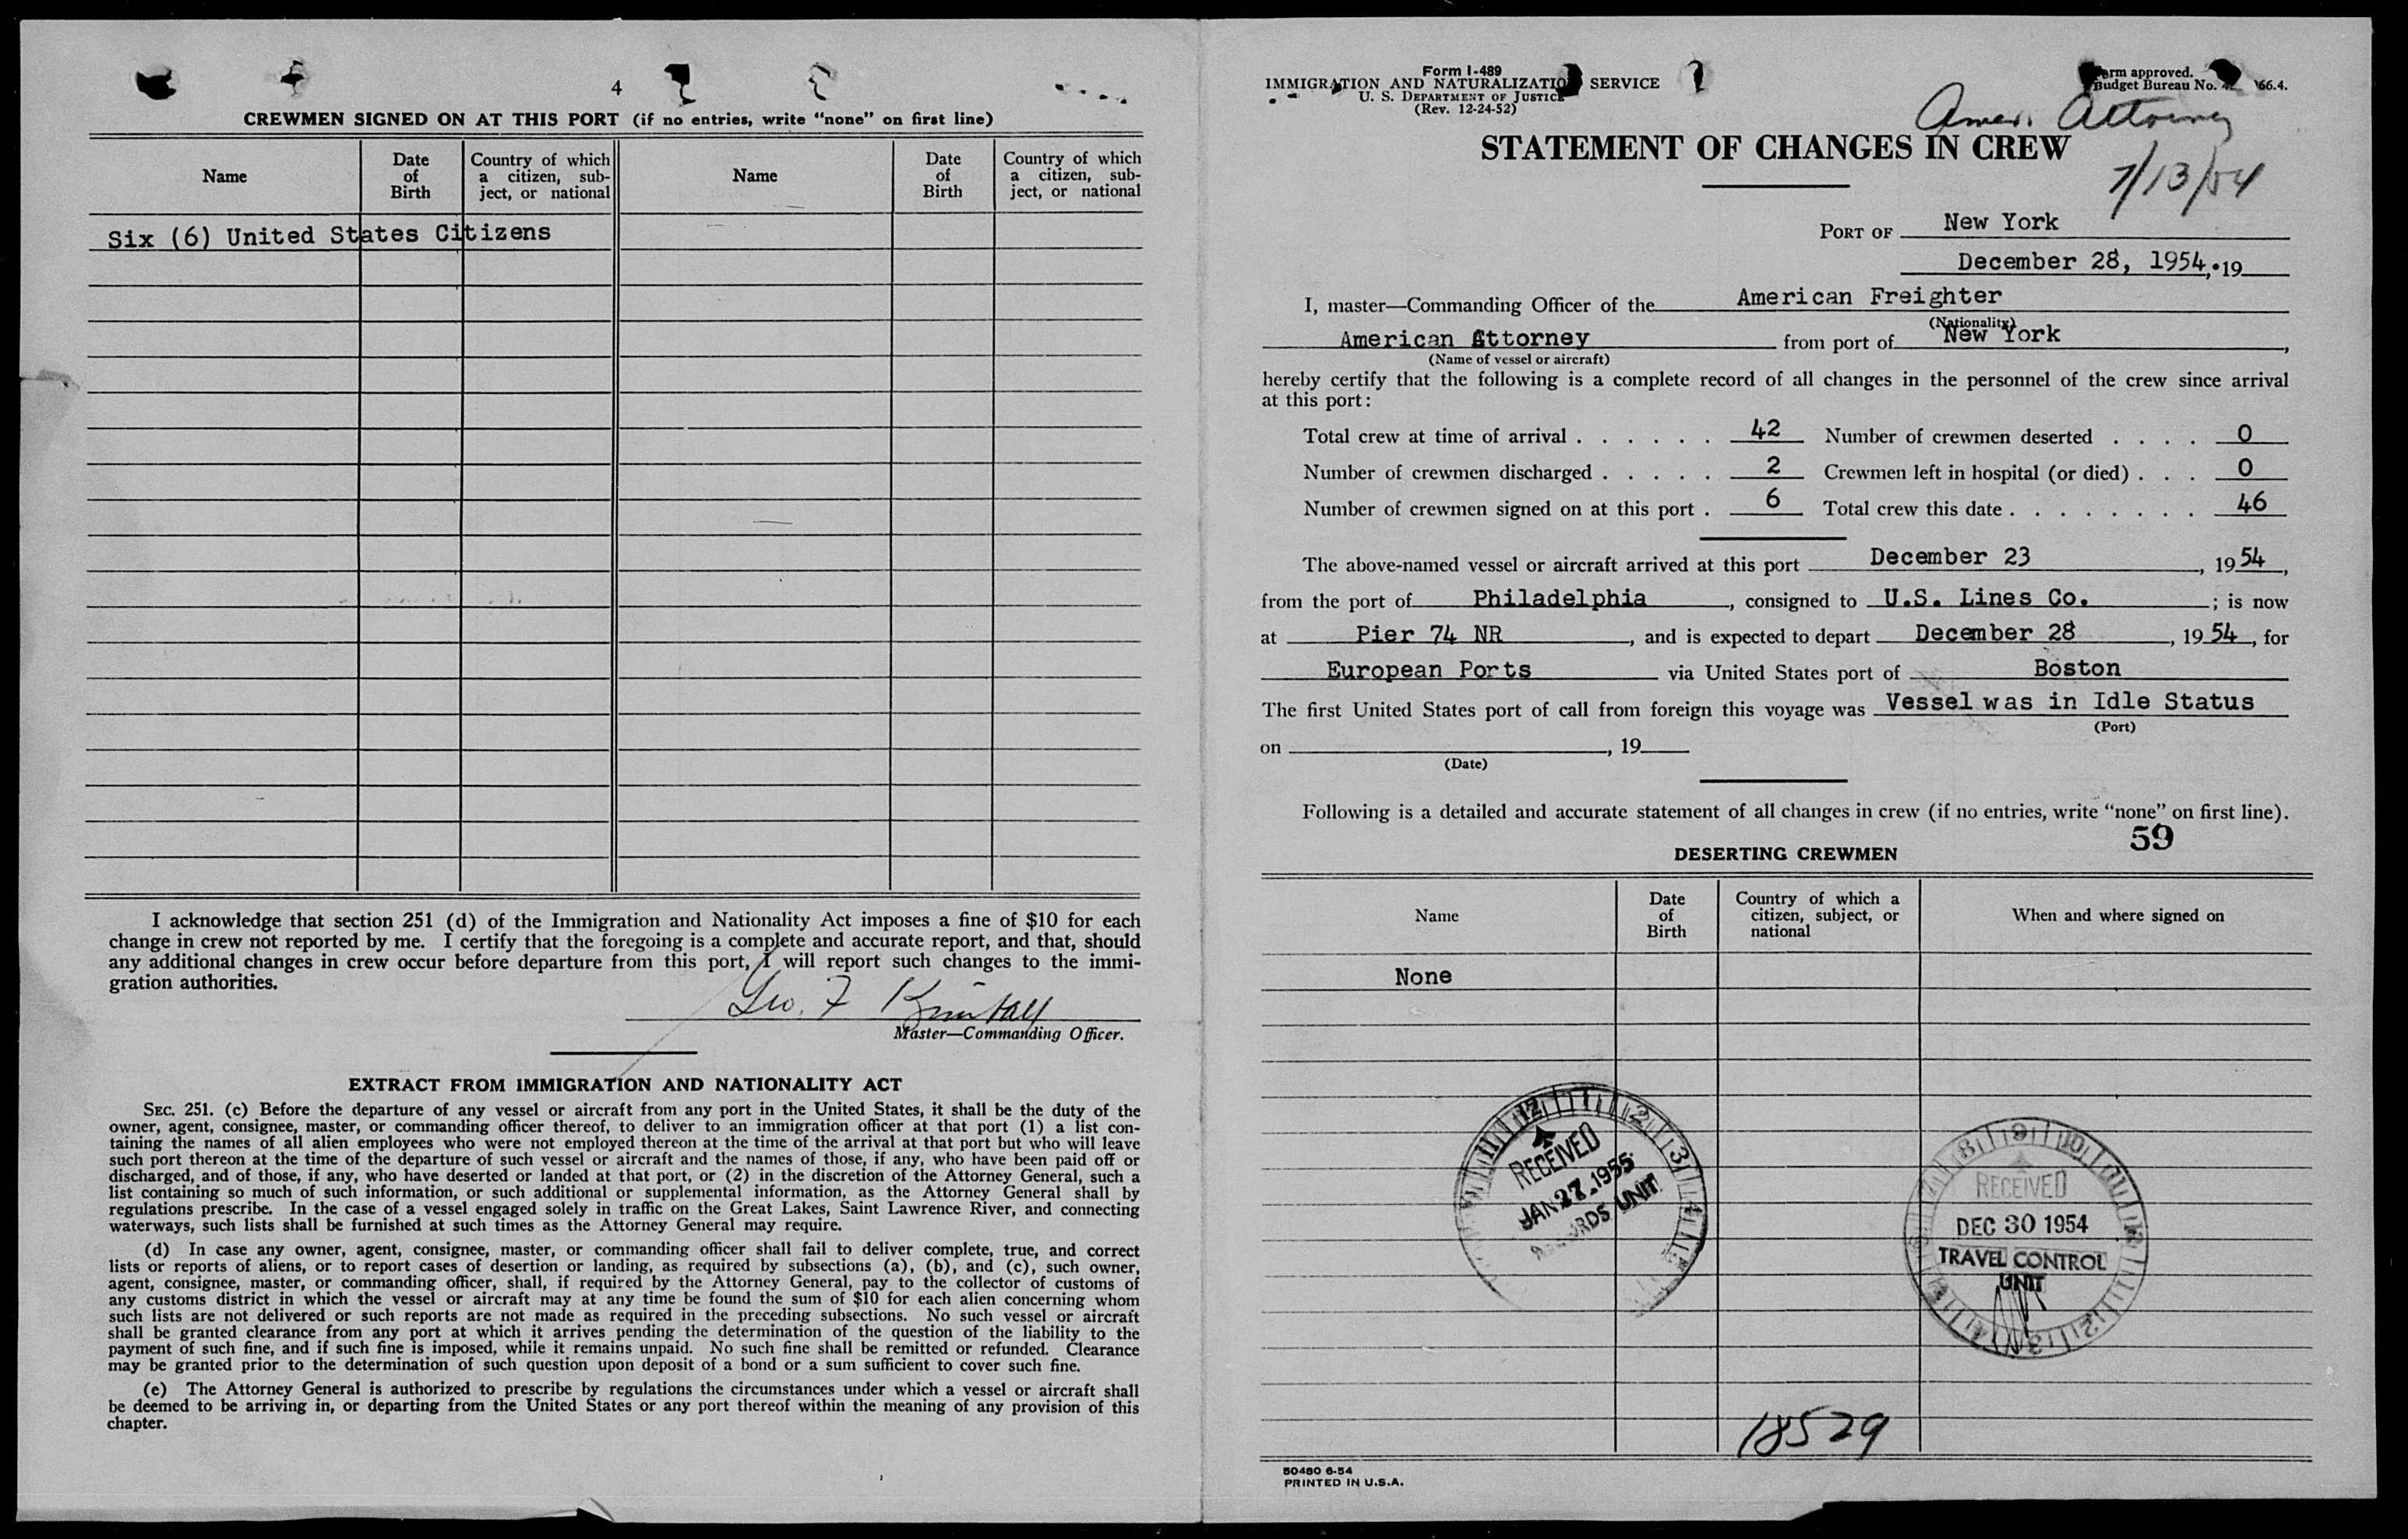 4
CREWMEN SIGNED ON AT THIS PORT (if no entries, write "none" on first line)
Name
Date of Birth
Country of which a citizen, subject, or national
Name
Date of Birth
Country of which a citizen, subject, or national
Six (6) United States Citizens
I acknowledge that section 251 (d) of the Immigration and Nationality Act imposes a fine of $10 for each
change in crew not reported by me. I certify that the foregoing is a complete and accurate report, and that, should
any additional changes in crew occur before departure from this port, I will report such changes to the immi-
gration authorities.
Geo. F Kimball
Master—Commanding Officer.
EXTRACT FROM IMMIGRATION AND NATIONALITY ACT
SEC. 251. (c) Before the departure of any vessel or aircraft from any port in the United States, it shall be the duty of the
owner, agent, consignee, master, or commanding officer thereof, to deliver to an immigration officer at that port (1) a list con-
taining the names of all alien employees who were not employed thereon at the time of the arrival at that port but who will leave
such port thereon at the time of the departure of such vessel or aircraft and the names of those, if any, who have been paid off or
discharged, and of those, if any, who have deserted or landed at that port, or (2) in the discretion of the Attorney General, such a
list containing so much of such information, or such additional or supplemental information, as the Attorney General shall by
regulations prescribe. In the case of a vessel engaged solely in traffic on the Great Lakes, Saint Lawrence River, and connecting
waterways, such lists shall be furnished at such times as the Attorney General may require.
(d) In case any owner, agent, consignee, master, or commanding officer shall fail to deliver complete, true, and correct
lists or reports of aliens, or to report cases of desertion or landing, as required by subsections (a), (b), and (c), such owner,
agent, consignee, master, or commanding officer, shall, if required by the Attorney General, pay to the collector of customs of
any customs district in which the vessel or aircraft may at any time be found the sum of $10 for each alien concerning whom
such lists are not delivered or such reports are not made as required in the preceding subsections. No such vessel or aircraft
shall be granted clearance from any port at which it arrives pending the determination of the question of the liability to the
payment of such fine, and if such fine is imposed, while it remains unpaid. No such fine shall be remitted or refunded. Clearance
may be granted prior to the determination of such question upon deposit of a bond or a sum sufficient to cover such fine.
(e) The Attorney General is authorized to prescribe by regulations the circumstances under which a vessel or aircraft shall
be deemed to be arriving in, or departing from the United States or any port thereof within the meaning of any provision of this
chapter.
Form I-489
IMMIGRATION AND NATURALIZATION SERVICE
U. S. DEPARTMENT OF JUSTICE
(Rev. 12-24-52)
Form approved.
Budget Bureau No. 66.4.
Amer. Attorney
7/13/54
STATEMENT OF CHANGES IN CREW
PORT OF New York
December 28, 1954, 19
I, master—Commanding Officer of the American Freighter
(Nationality)
American Attorney from port of New York,
(Name of vessel or aircraft)
hereby certify that the following is a complete record of all changes in the personnel of the crew since arrival
at this port:
Total crew at time of arrival . . . . . . 42 Number of crewmen deserted . . . . 0
Number of crewmen discharged . . . . . 2 Crewmen left in hospital (or died) . . . 0
Number of crewmen signed on at this port . 6 Total crew this date . . . . . . . . 46
The above-named vessel or aircraft arrived at this port December 23, 1954,
from the port of Philadelphia, consigned to U.S. Lines Co.; is now
at Pier 74 NR, and is expected to depart December 28, 1954, for
European Ports via United States port of Boston
The first United States port of call from foreign this voyage was Vessel was in Idle Status
(Port)
on , 19
(Date)
Following is a detailed and accurate statement of all changes in crew (if no entries, write "none" on first line).
59
DESERTING CREWMEN
Name
Date of Birth
Country of which a citizen, subject, or national
When and where signed on
None
RECEIVED
JAN 27 1955
UNIT
RECEIVED
DEC 30 1954
TRAVEL CONTROL
UNIT
18529
50480 6-54
PRINTED IN U.S.A.